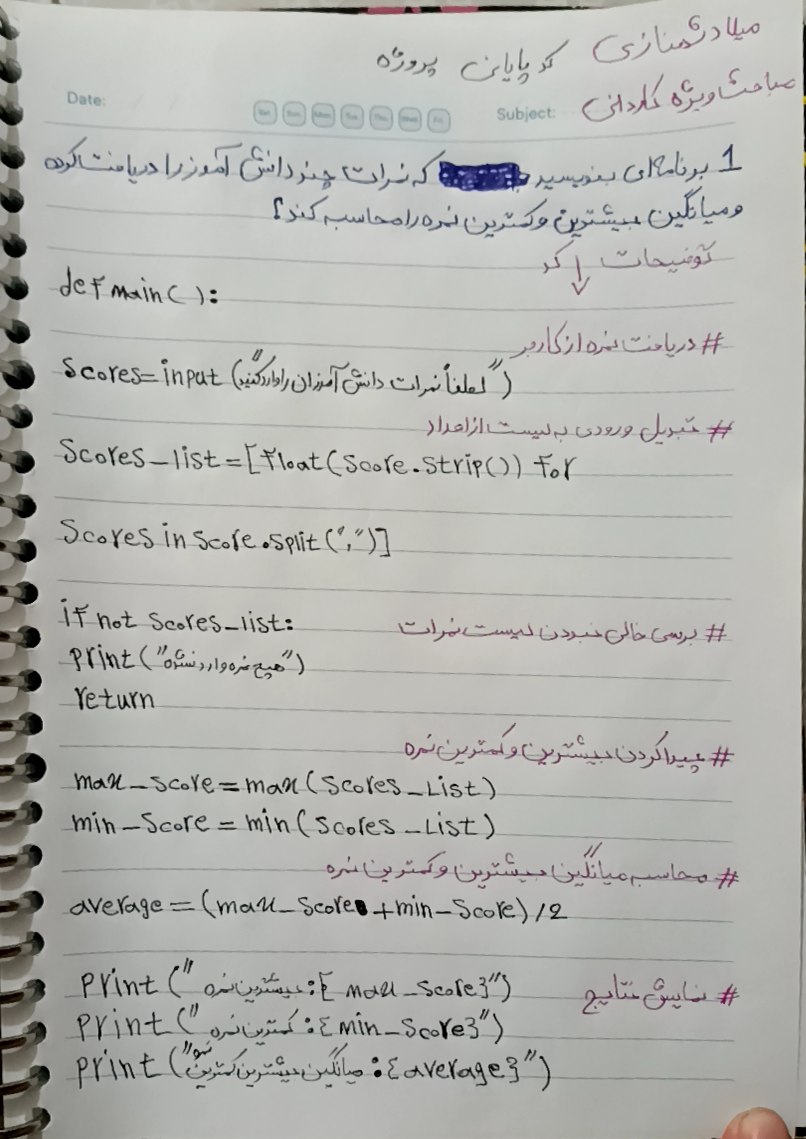 میلاد شهنازی
مباحث ویژه کاردانی
کد پایانی پروژه
Subject:
Date:
1 برنامه‌ای بنویسید که نمرات چند دانش آموز را دریافت کرده
و میانگین بیشترین و کمترین نمره را محاسبه کند؟
توضیحات کد
def main():
# دریافت نمره از کاربر
Scores=input("لطفاً نمرات دانش آموزان را وارد کنید")
# تبدیل ورودی به لیست از اعداد
Scores_list=[float(Score.strip()) for
Scores in Score.split(",")]
# بررسی خالی نبودن لیست نمرات
if not Scores_list:
print("هیچ نمره وارد نشده")
return
# پیدا کردن بیشترین و کمترین نمره
max_score=max(Scores_List)
min_score=min(Scores_List)
# محاسبه میانگین بیشترین و کمترین نمره
average=(max_score+min_score)/2
# نمایش نتایج
print("بیشترین نمره:{max_score}")
print("کمترین نمره:{min_score}")
print("میانگین بیشترین کمترین نمره:{average}")